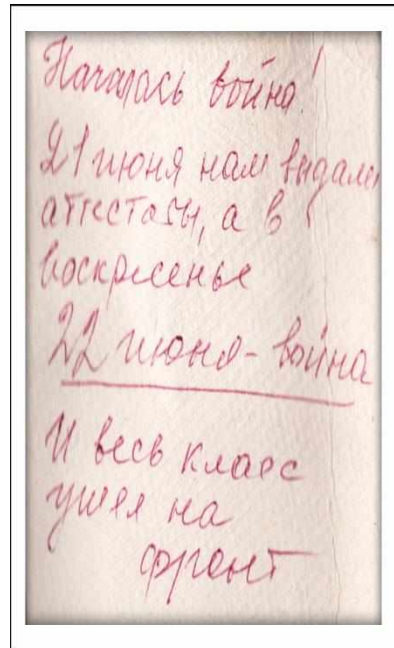 Началась война!
21 июня нам выдали
аттестаты, а в
воскресенье
22 июня - война
И весь класс
ушел на
фронт